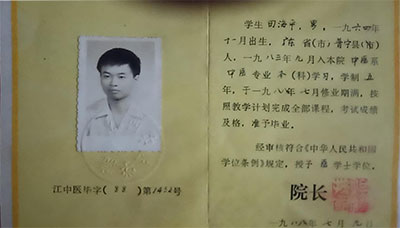 江中医毕字(88)第1452号
学生田海平,男,一九六四年
十一月出生,广东省(市)普宁县(市)
人,一九八三年九月入本院中医系
中医专业本(科)学习,学制五
年,于一九八八年七月修业期满,按
照教学计划完成全部课程,考试成绩
及格,准予毕业。
经审核符合《中华人民共和国
学位条例》规定,授予医学士学位。
院长
一九八八年七月九日